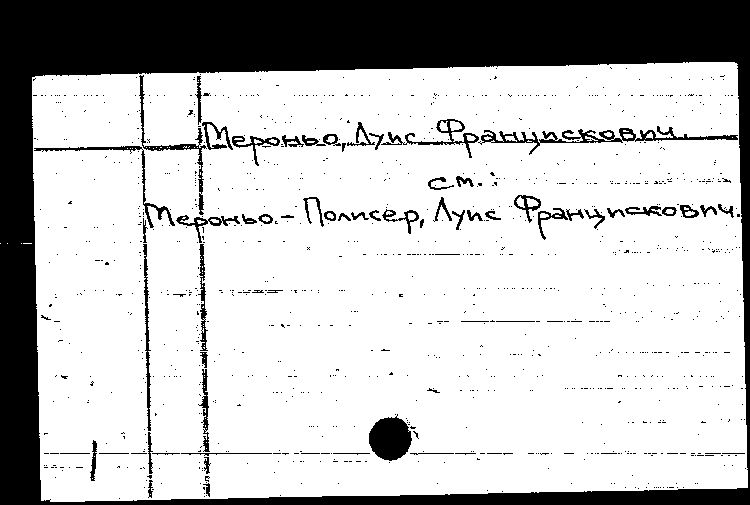 Мероньо, Луис Францискович.
см.:
Мероньо-Полисер, Луис Францискович.